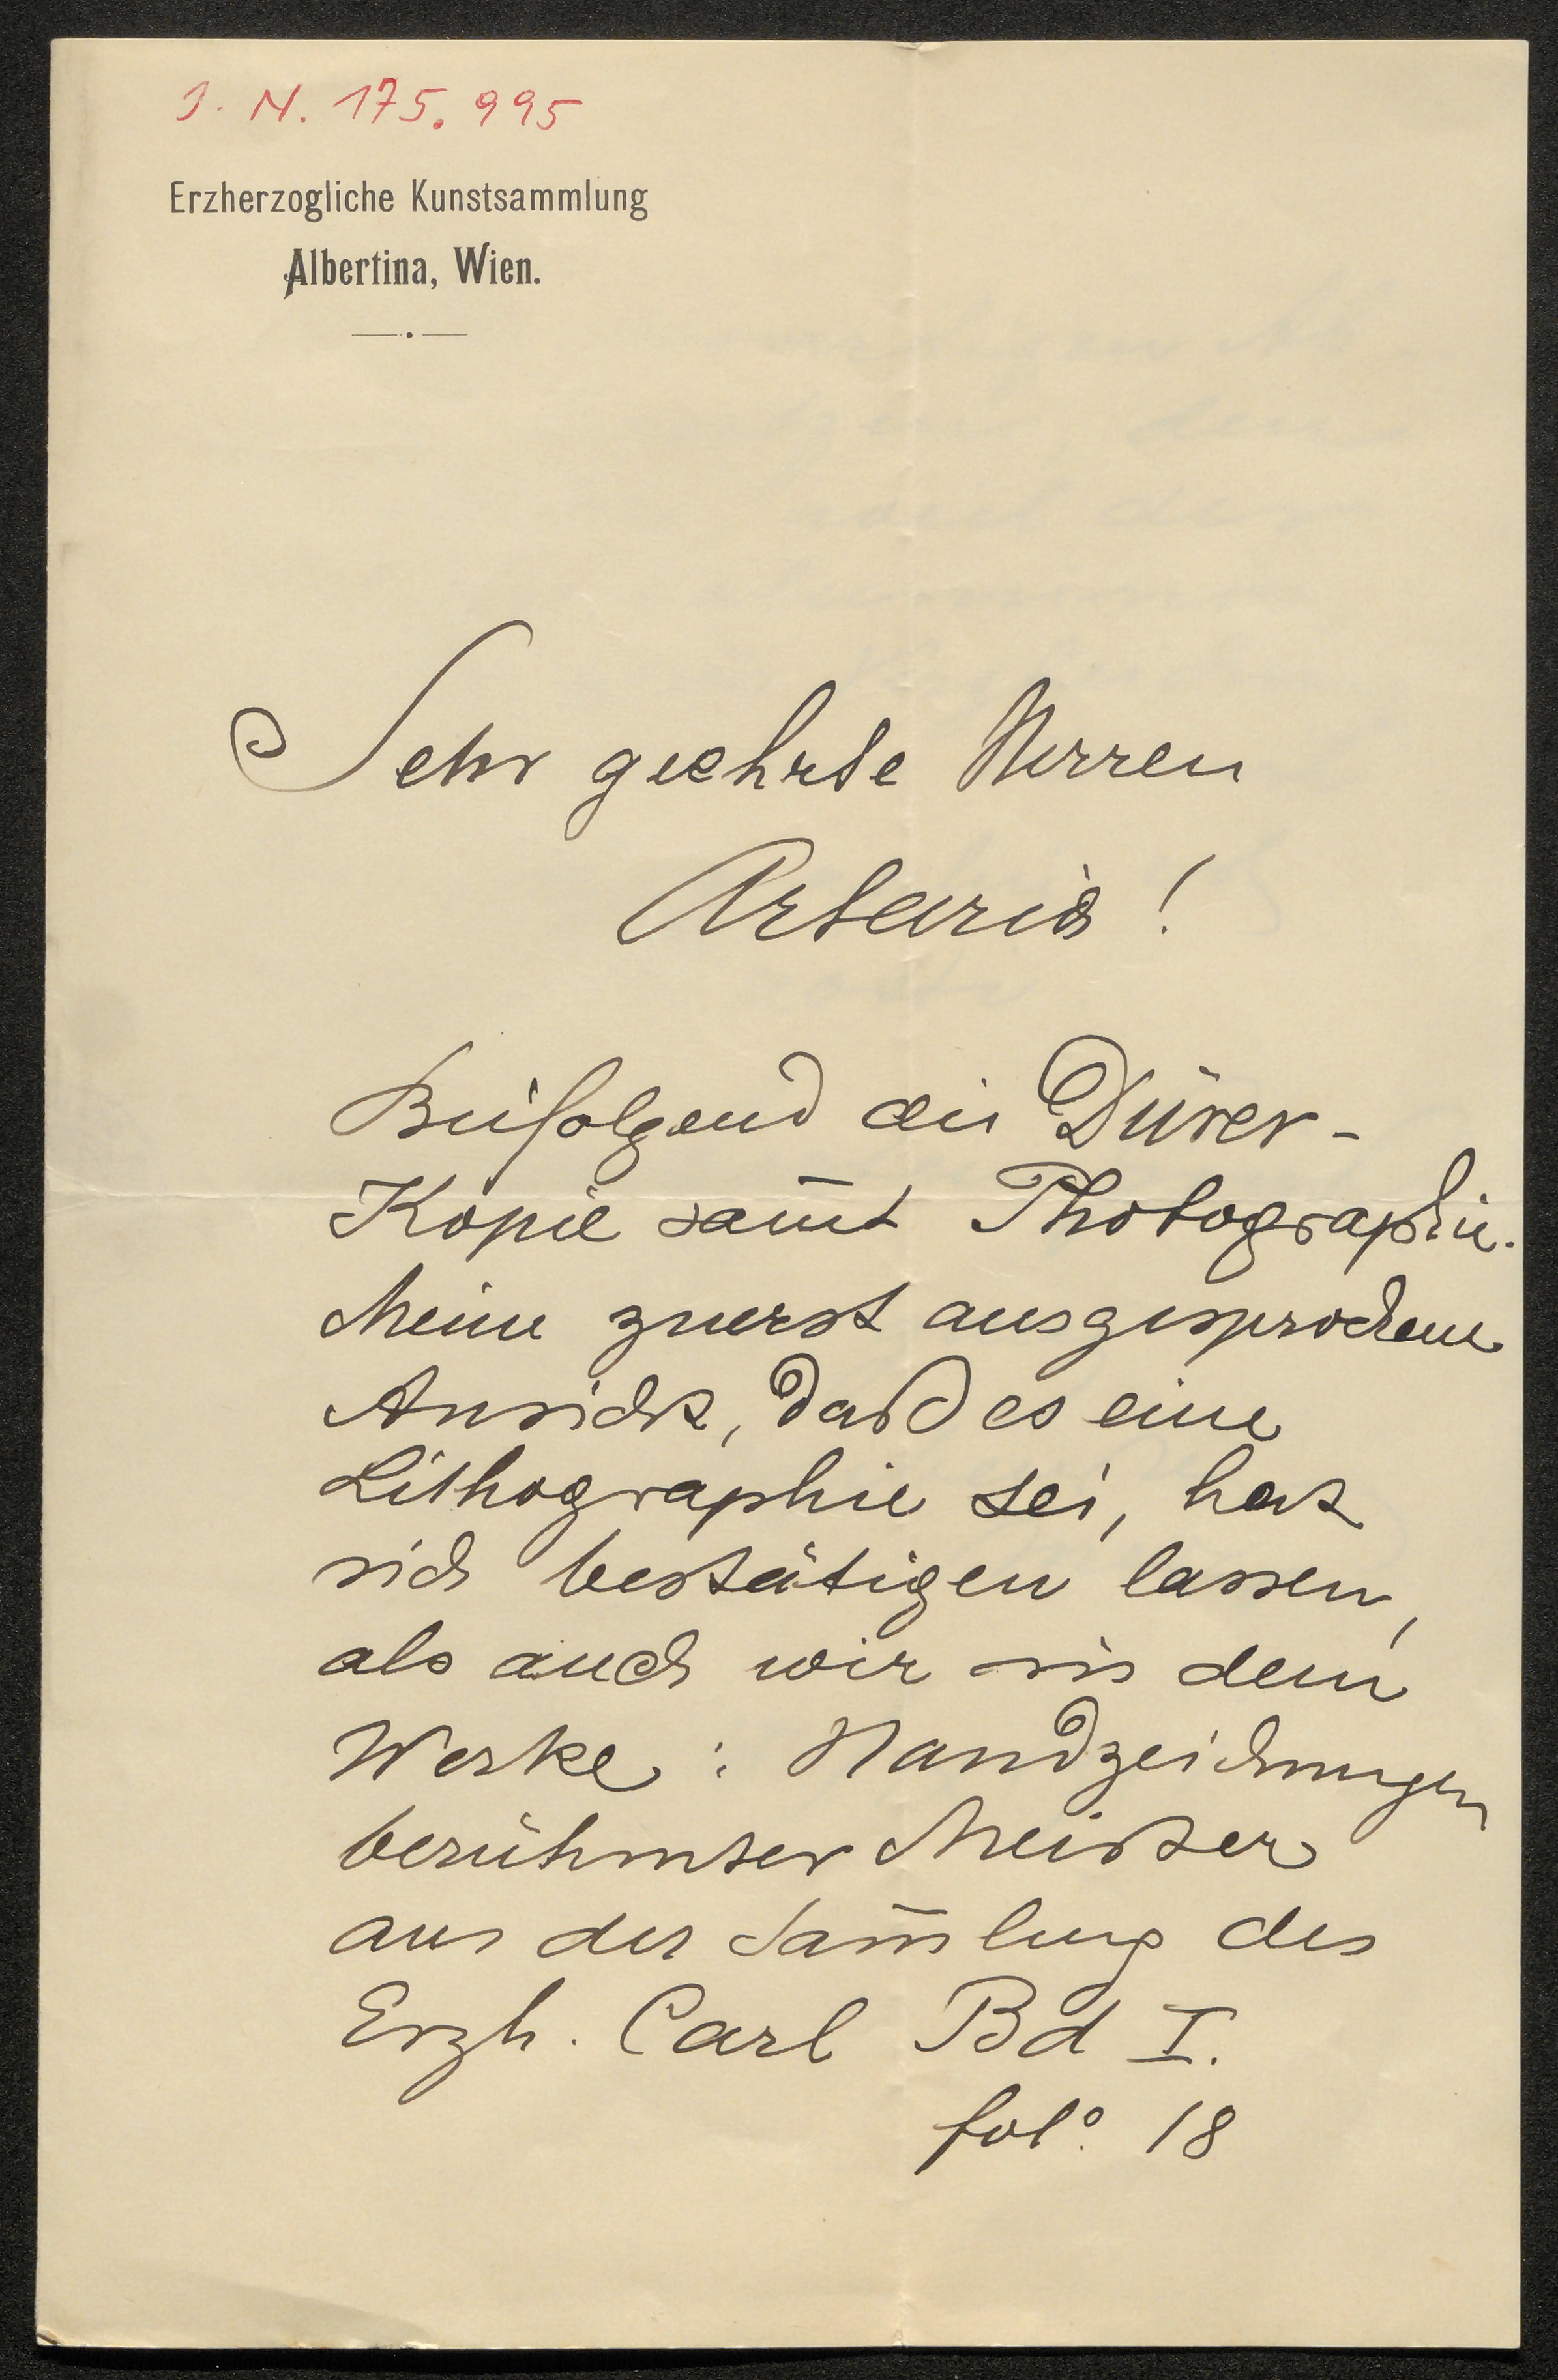 J. N. 175.995
Erzherzogliche Kunstsammlung
Albertina, Wien.
Sehr geehrte Herren
Artaria!
Beifolgend die Dürer-
Kopie sam̅t Photographie.
Meine zuerst ausgesprochene
Ansicht, daß es eine
Lithographie sei, hat
sich bestätigen lassen,
als auch wir sie dem
Werke: Handzeichnungen
berühmter Meister
aus der Sam̅lung des
Erzh. Carl Bd I.
folº. 18